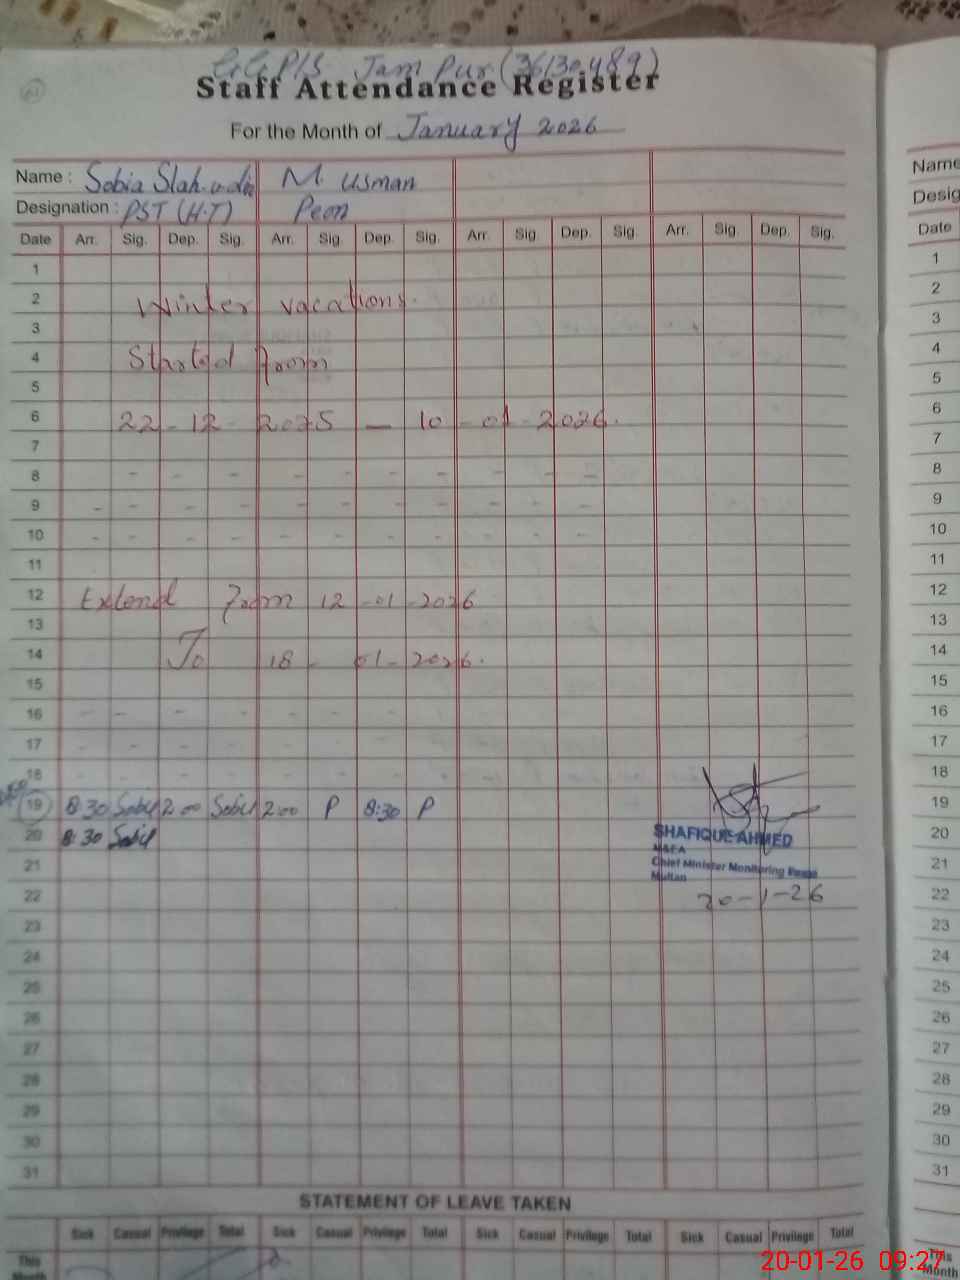 G.G.P/S Jam Pur (36130489)
Staff Attendance Register
For the Month of January 2026
Name : Sobia M. Usman
Designation : PST (H.T) Peon
Date Arr. Sig. Dep. Sig. Arr. Sig. Dep. Sig. Arr. Sig. Dep. Sig. Arr. Sig. Dep. Sig.
1
2 Winter vacations.
3
4 Started From
5
6 22 - 12 - 2025 — 10 - 01 - 2026.
7
8 - - - - - - - - - -
9 - - - - - - - - - - -
10 - - - - - - - - - - -
11
12 Extend From 12 - 01 - 2026
13
14 To 18 - 01 - 2026.
15
16 - - - - - - - -
17 - - - - - - - -
18 - - - - - - - -
19 8:30 2:00 2:00 P 8:30 P
20 8:30
SHAFIQUE AHMED
M&EA
21
Chief Minister Monitoring Force
Multan
22 20-1-26
23
24
25
26
27
28
29
30
31
STATEMENT OF LEAVE TAKEN
Sick Casual Privilege Total Sick Casual Privilege Total Sick Casual Privilege Total Sick Casual Privilege Total
This Month
Name
Desig
Date
1
2
3
4
5
6
7
8
9
10
11
12
13
14
15
16
17
18
19
20
21
22
23
24
25
26
27
28
29
30
31
This
Month
20-01-26 09:27